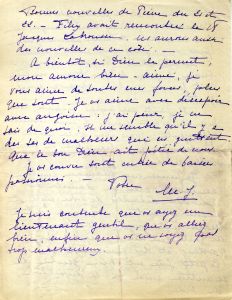 Bonnes nouvelles de Pierre du 21 et
22 - Filly avait rencontré le 18
Jacques Lahousse. on aurons aussi
des nouvelles de ce côté. -
A bientôt, si Dieu le permet,
mon amour bien-aimé, je
vous aime de toutes mes forces, plus
que tout. Je vs aime avec désespoir
avec angoisse. J'ai peur, je ne
sais de quoi, il me semble qu'il y a
des tas de malheurs qui ns guettent
que le bon Dieu ait pitié de nous
Je vs couvre tout entier de baisers
passionnés -
M. J.
Je suis contente que vs ayez un
lieutenant gentil, que vs alliez
bien, enfin que vs ne soyez pas
trop malheureux.